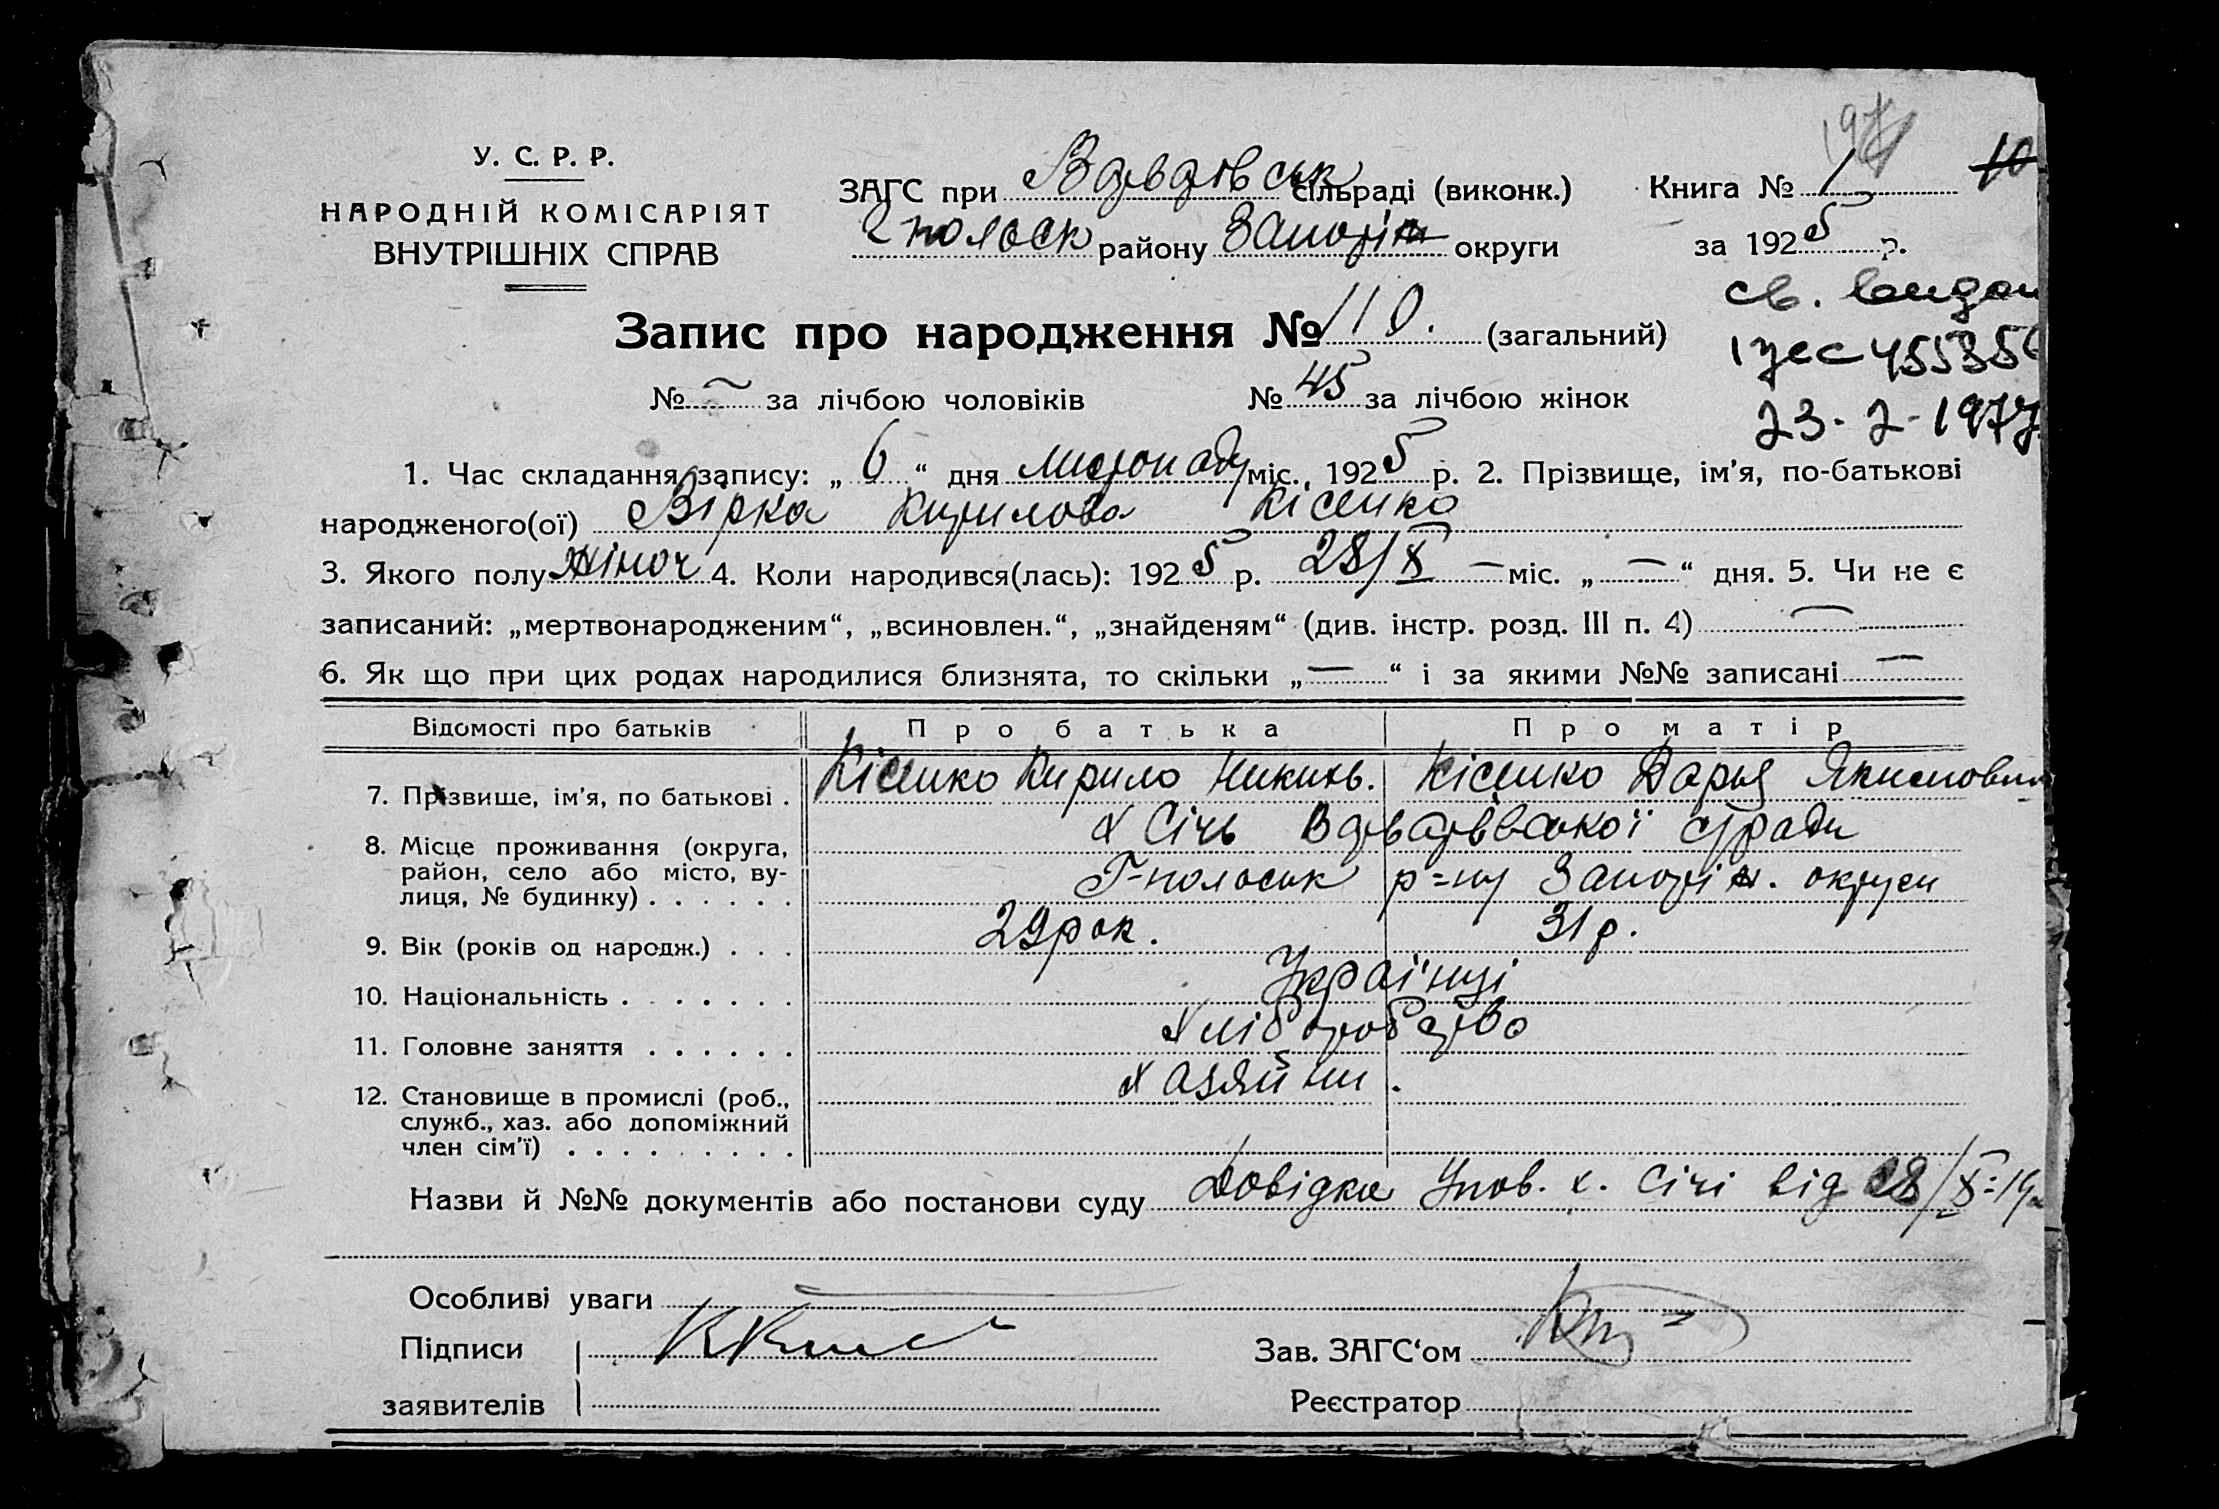 10
У. С. Р. Р.
НАРОДНІЙ КОМІСАРІЯТ
ВНУТРІШНІХ СПРАВ
ЗАГС при Варварівськ сільраді (виконк.)
Книга № 1
Г польськ району Запоріж округи
за 1925 р.
св. видан
Запис про народження № 110. (загальний)
№ – за лічбою чоловіків № 45 за лічбою жінок
23-2-1977
1. Час складання запису: „ 6 “ дня листопаду міс., 1925 р. 2. Прізвище, ім'я, по-батькові
народженого(ої) Вірка Кирилова Кісенко
3. Якого полу жіноч 4. Коли народився(лась): 1925 р. 28/X – міс. „ – “ дня. 5. Чи не є
записаний: „мертвонародженим“, „всиновлен.“, „знайденям“ (див. інстр. розд. III п. 4) –
6. Як що при цих родах народилися близнята, то скільки „ – “ і за якими №№ записані –
Відомості про батьків
Про батька
Про матір
7. Прізвище, ім'я, по батькові .
Кісенко Кирило Никиф. Кісенко Дарья Якимовна
8. Місце проживання (округа,
район, село або місто, ву-
лиця, № будинку) . . . . . .
х Січь Варварівської с/ради
Г-польськ р-ну Запоріж. округи
9. Вік (років од народж.) . . .
29 рок. 31 р.
10. Національність . . . . . . .
Українці
11. Головне заняття . . . . . .
Хліборобство
12. Становище в промислі (роб.,
служб., хаз. або допоміжний
член сім'ї) . . . . . . . . .
Хазяйни.
Назви й №№ документів або постанови суду Довідка Упов. х. Січі від 28/X-19
Особливі уваги
Підписи
заявителів
Зав. ЗАГС‘ом
Реєстратор